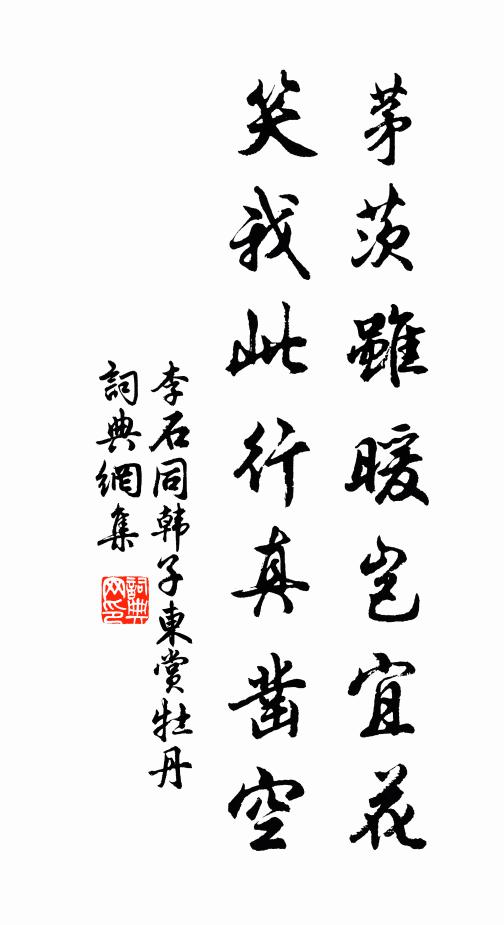 茅茨雖暖豈宜花
笑我此行真鑿空
李石同韩子東赏牡丹
詞典網集
詞典网印